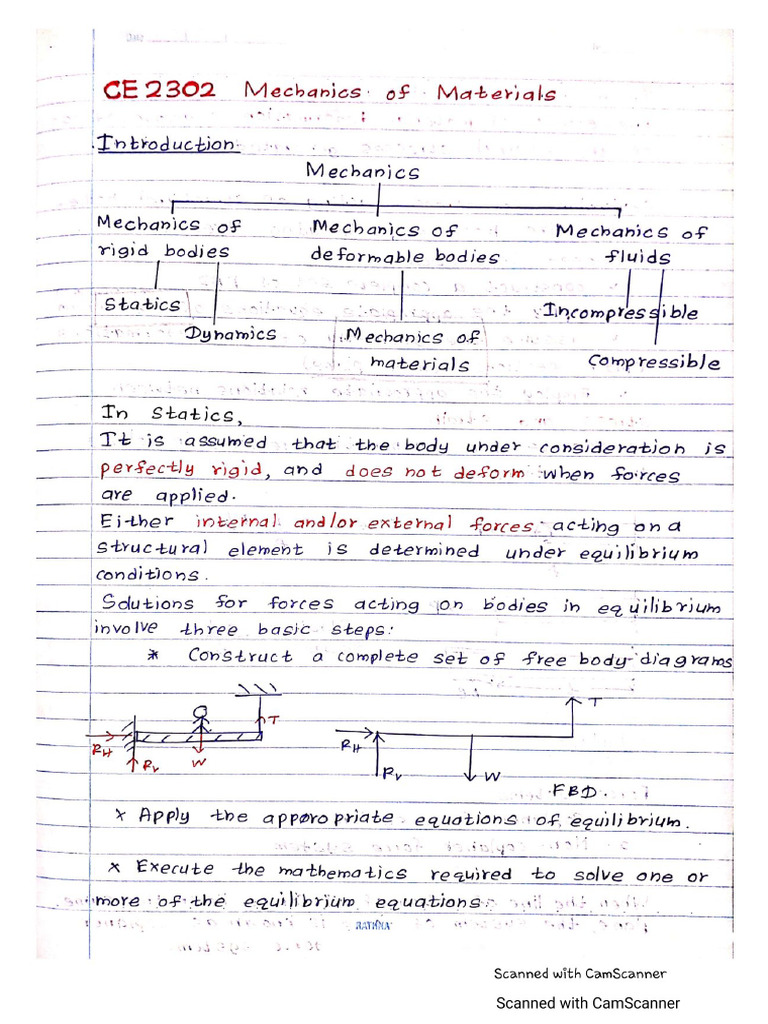 CE 2302 Mechanics of Materials
Introduction
Mechanics
Mechanics of Mechanics of Mechanics of
rigid bodies deformable bodies fluids
Statics Incompressible
Dynamics Mechanics of
materials Compressible
In statics,
It is assumed that the body under consideration is
perfectly rigid, and does not deform when forces
are applied.
Either internal and/or external forces acting on a
structural element is determined under equilibrium
conditions.
Solutions for forces acting on bodies in equilibrium
involve three basic steps:
* Construct a complete set of free body diagrams
T
RH RV W T
RH RV W
FBD.
* Apply the apporopriate equations of equilibrium.
* Execute the mathematics required to solve one or
more of the equilibrium equations
RATHNA
Scanned with CamScanner
Scanned with CamScanner